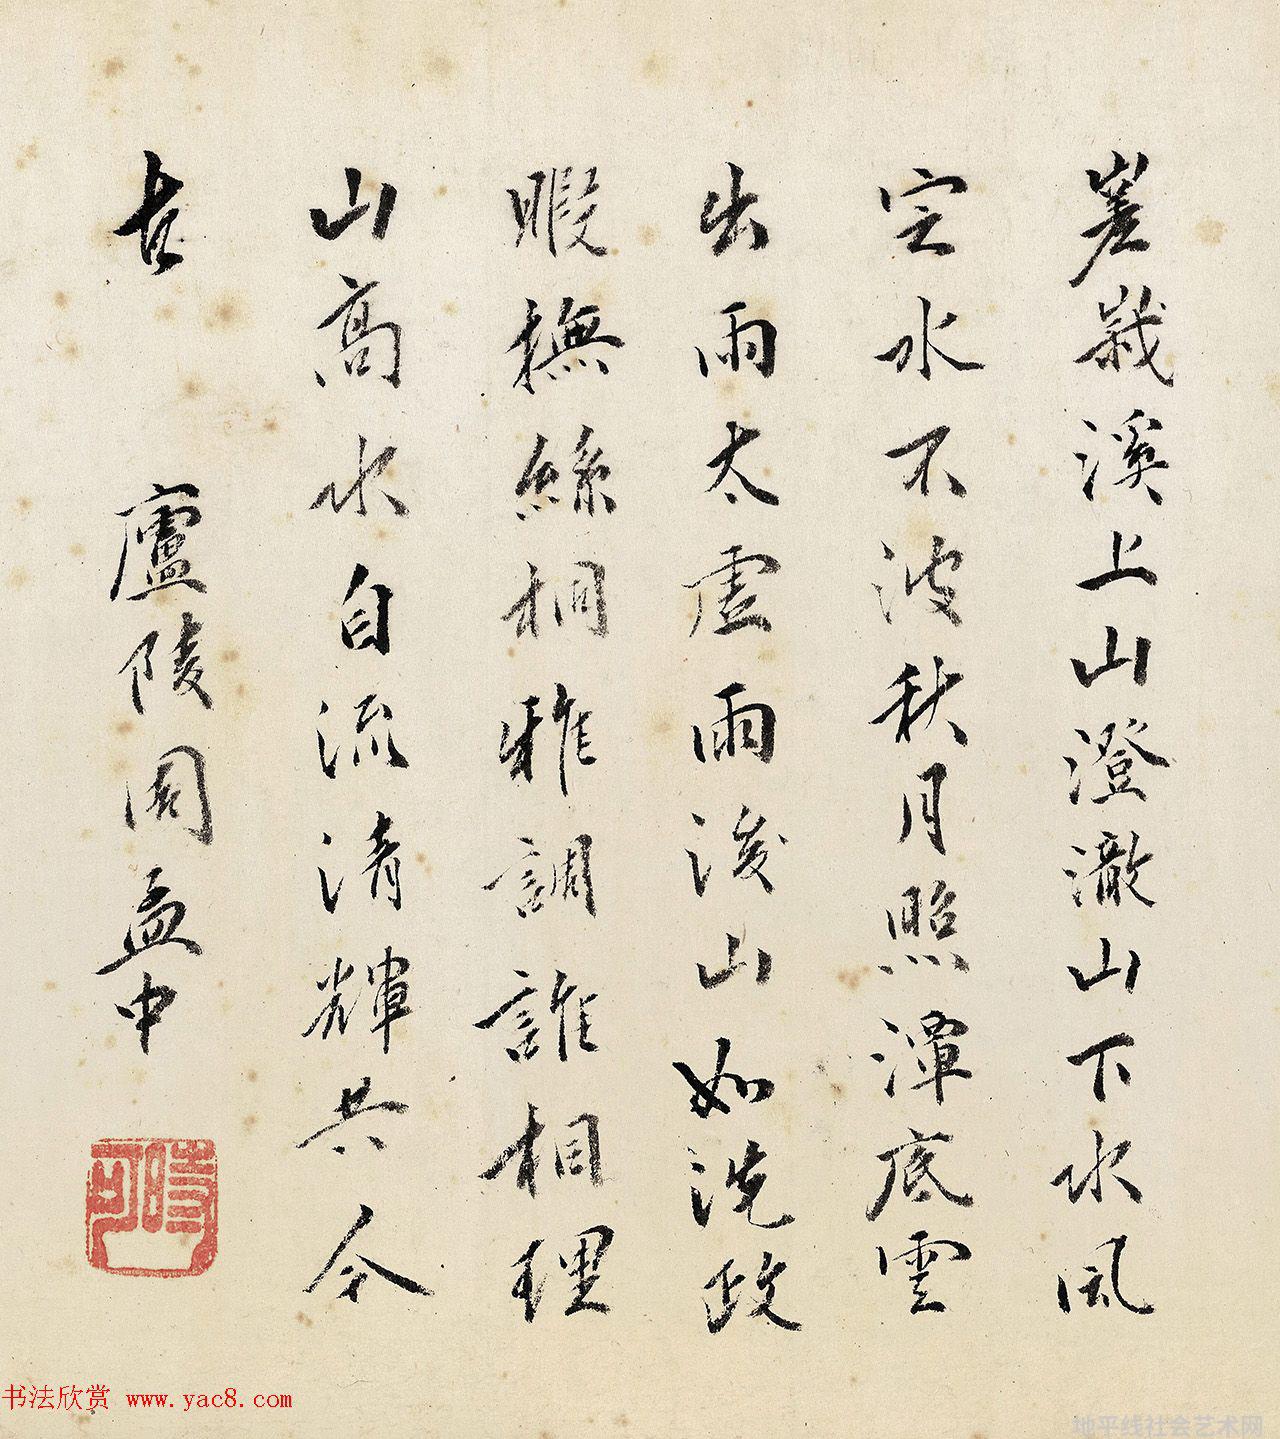 峩峩溪上山澄澈山下水風
定水不波秋月照潭底雲
出雨太虛雨後山如洗政
暇撫絲桐雅調誰相理
山高水自流清輝共今
古
廬陵周孟中
時可
书法欣赏 www.yac8.com
地平线社会艺术网